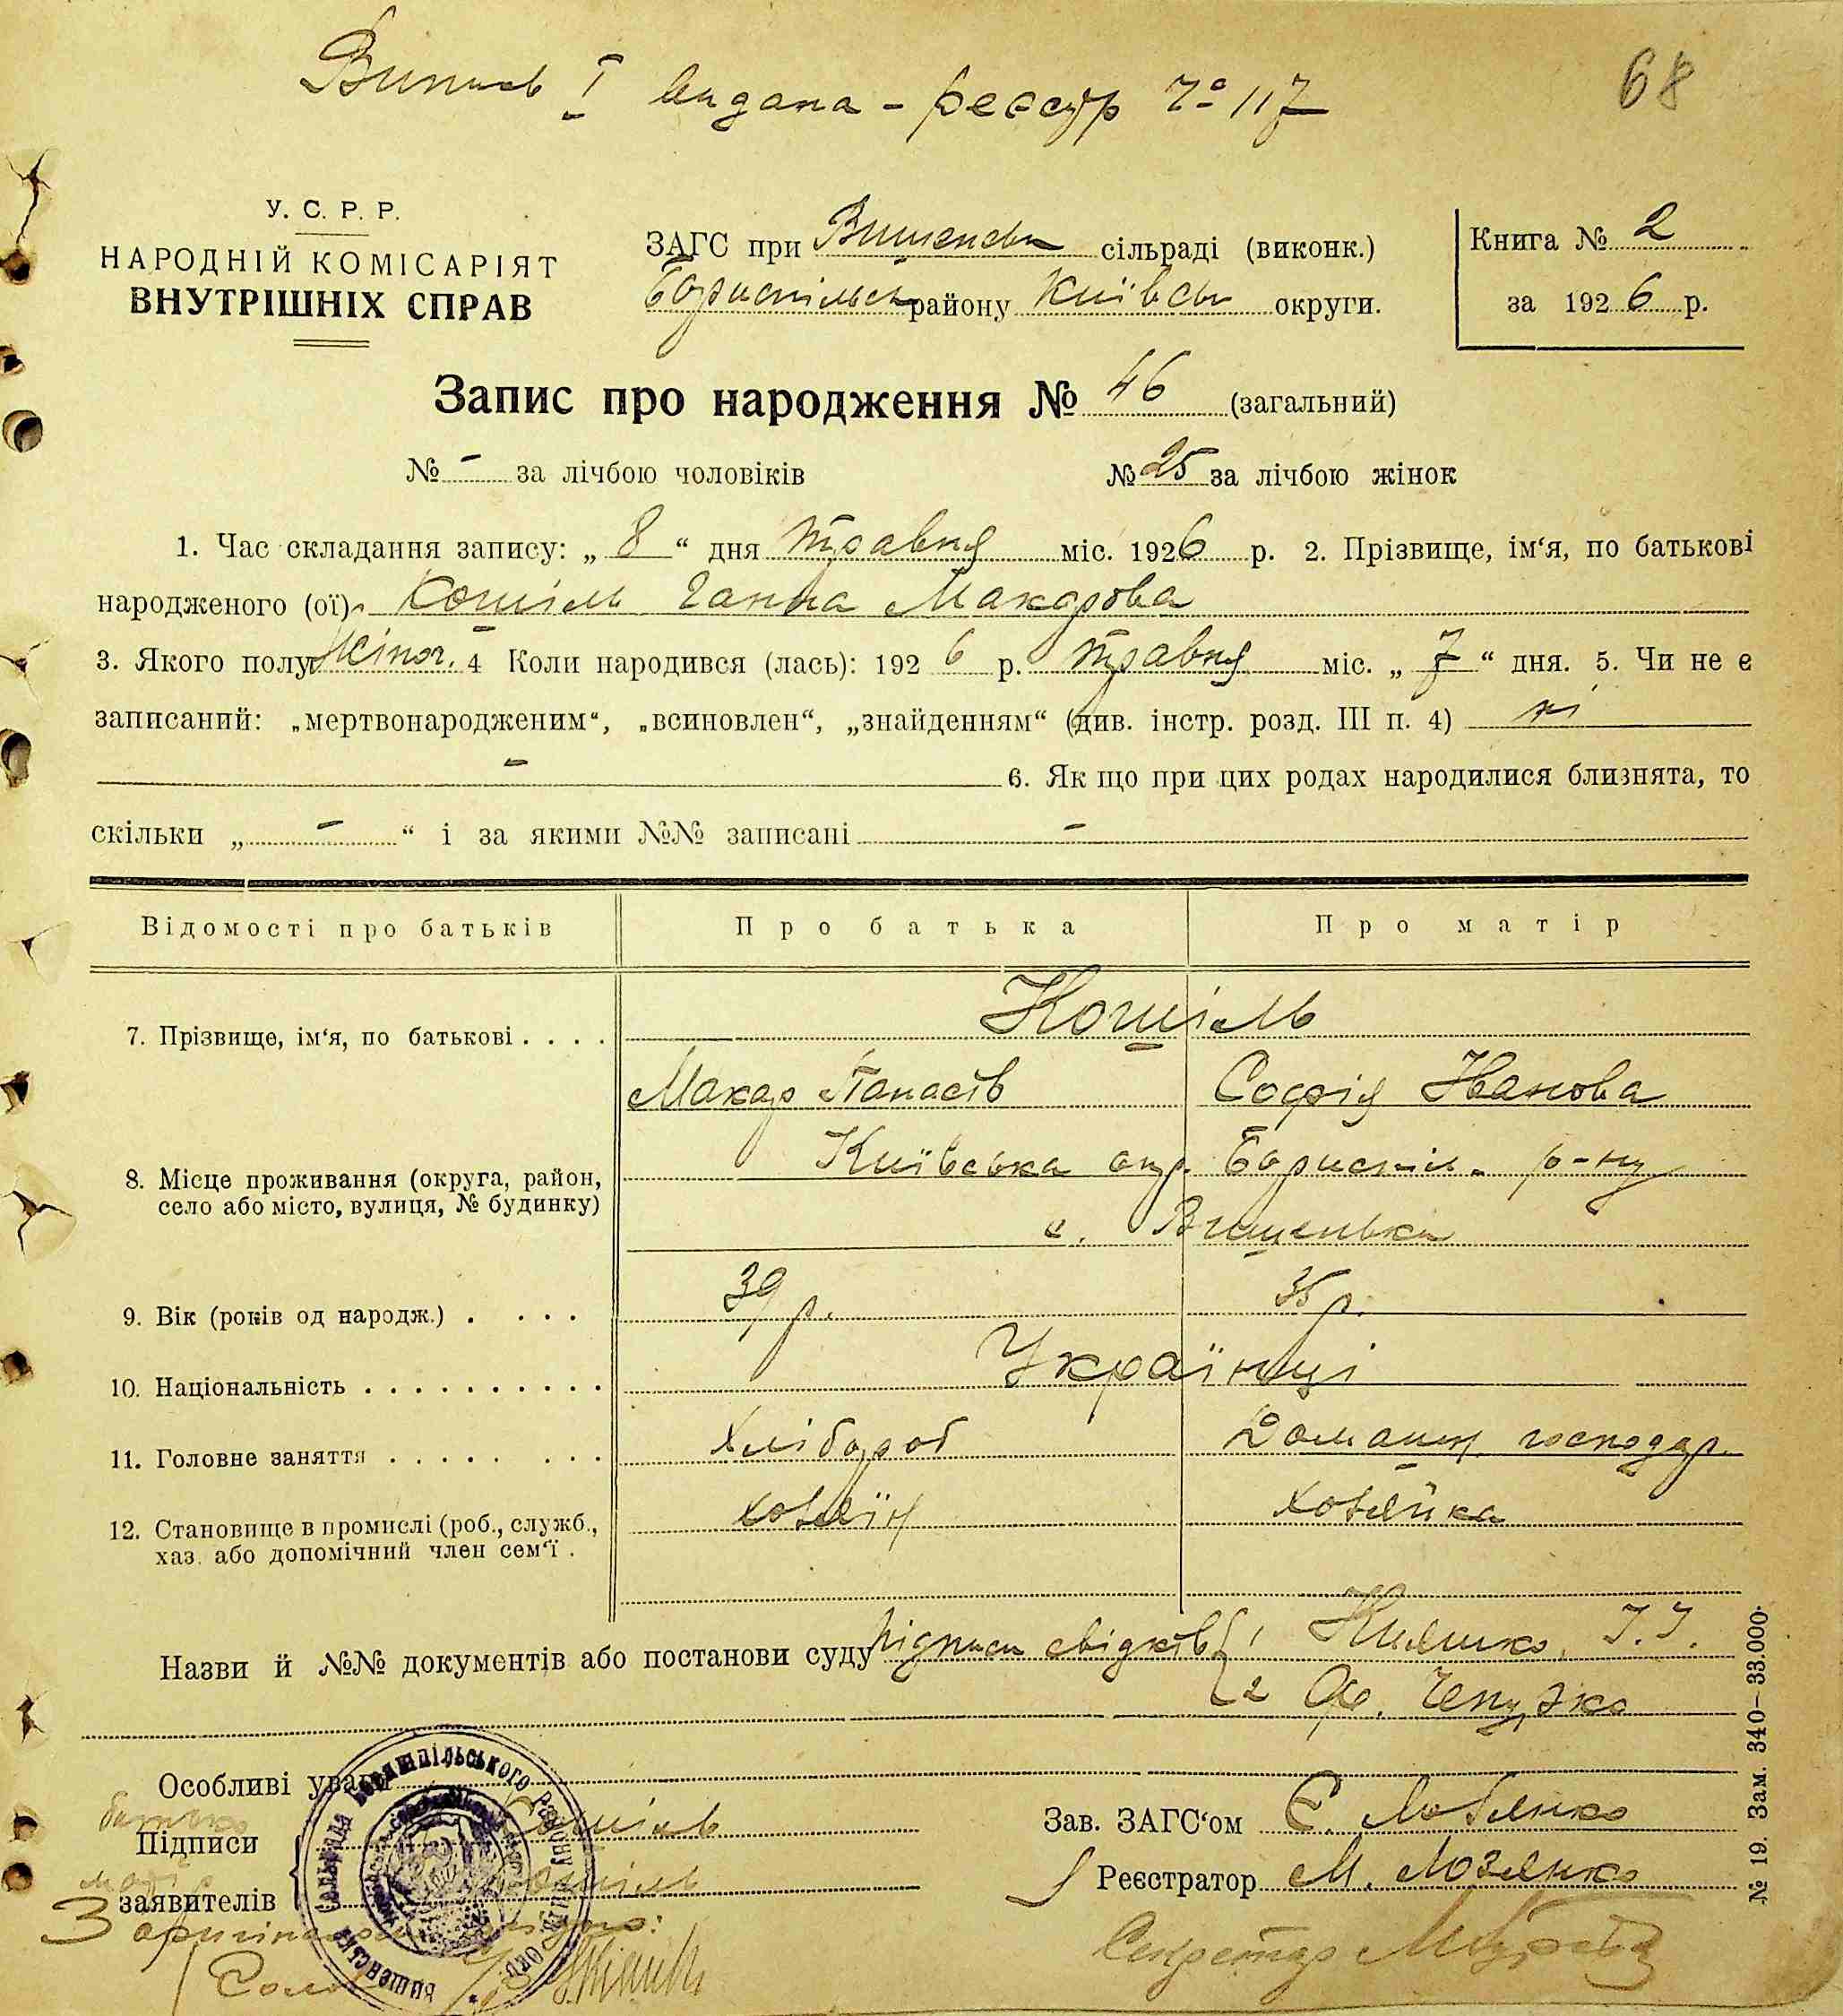 Випись I видана - реєстр № 117
68
У. С. Р. Р.
НАРОДНІЙ КОМІСАРІЯТ
ВНУТРІШНІХ СПРАВ
ЗАГС при Вишенськ сільраді (виконк.)
Бориспільськ району Київськ округи.
Книга № 2
за 1926 р.
Запис про народження № 46 (загальний)
№ - за лічбою чоловіків № 25 за лічбою жінок
1. Час складання запису: „ 8 “ дня травня міс. 1926 р. 2. Прізвище, ім‘я, по батькові
народженого (ої) Кошіль Ганна Макарова
3. Якого полу жіноч. 4 Коли народився (лась): 192 6 р. травня міс. „ 7 “ дня. 5. Чи не є
записаний: „мертвонародженим“, „всиновлен“, „знайденням“ (див. інстр. розд. III п. 4) ні
- 6. Як що при цих родах народилися близнята, то
скільки „ - “ і за якими №№ записані -
Відомості про батьків Про батька Про матір
7. Прізвище, ім‘я, по батькові . . . . Кошіль
Макар Панасів Софія Іванова
8. Місце проживання (округа, район, Київська окр. Бориспіль. р-ну
село або місто, вулиця, № будинку) с. Вишеньки
9. Вік (років од народж.) . . . . 39 р. 35 р.
10. Національність . . . . . . . . . . Українці
11. Головне заняття . . . . . . . . Хлібороб Домашн. господар.
12. Становище в промислі (роб., служб., хозяїн хозяйка
хаз. або допомічний член сем‘ї .
Назви й №№ документів або постанови суду підписи свідків { 1 Кияшко І. І.
2 Ф. Чепурко
Особливі уваги
батько
Підписи Кошіль
заявителів Кошіль
Зав. ЗАГС‘ом Є. Лозенко
Реєстратор М. Лозенко
Секретар
З оригіналом згідно:
Сільрада Бориспільського району
Вишенська
№ 19. Зам. 340—33.000.